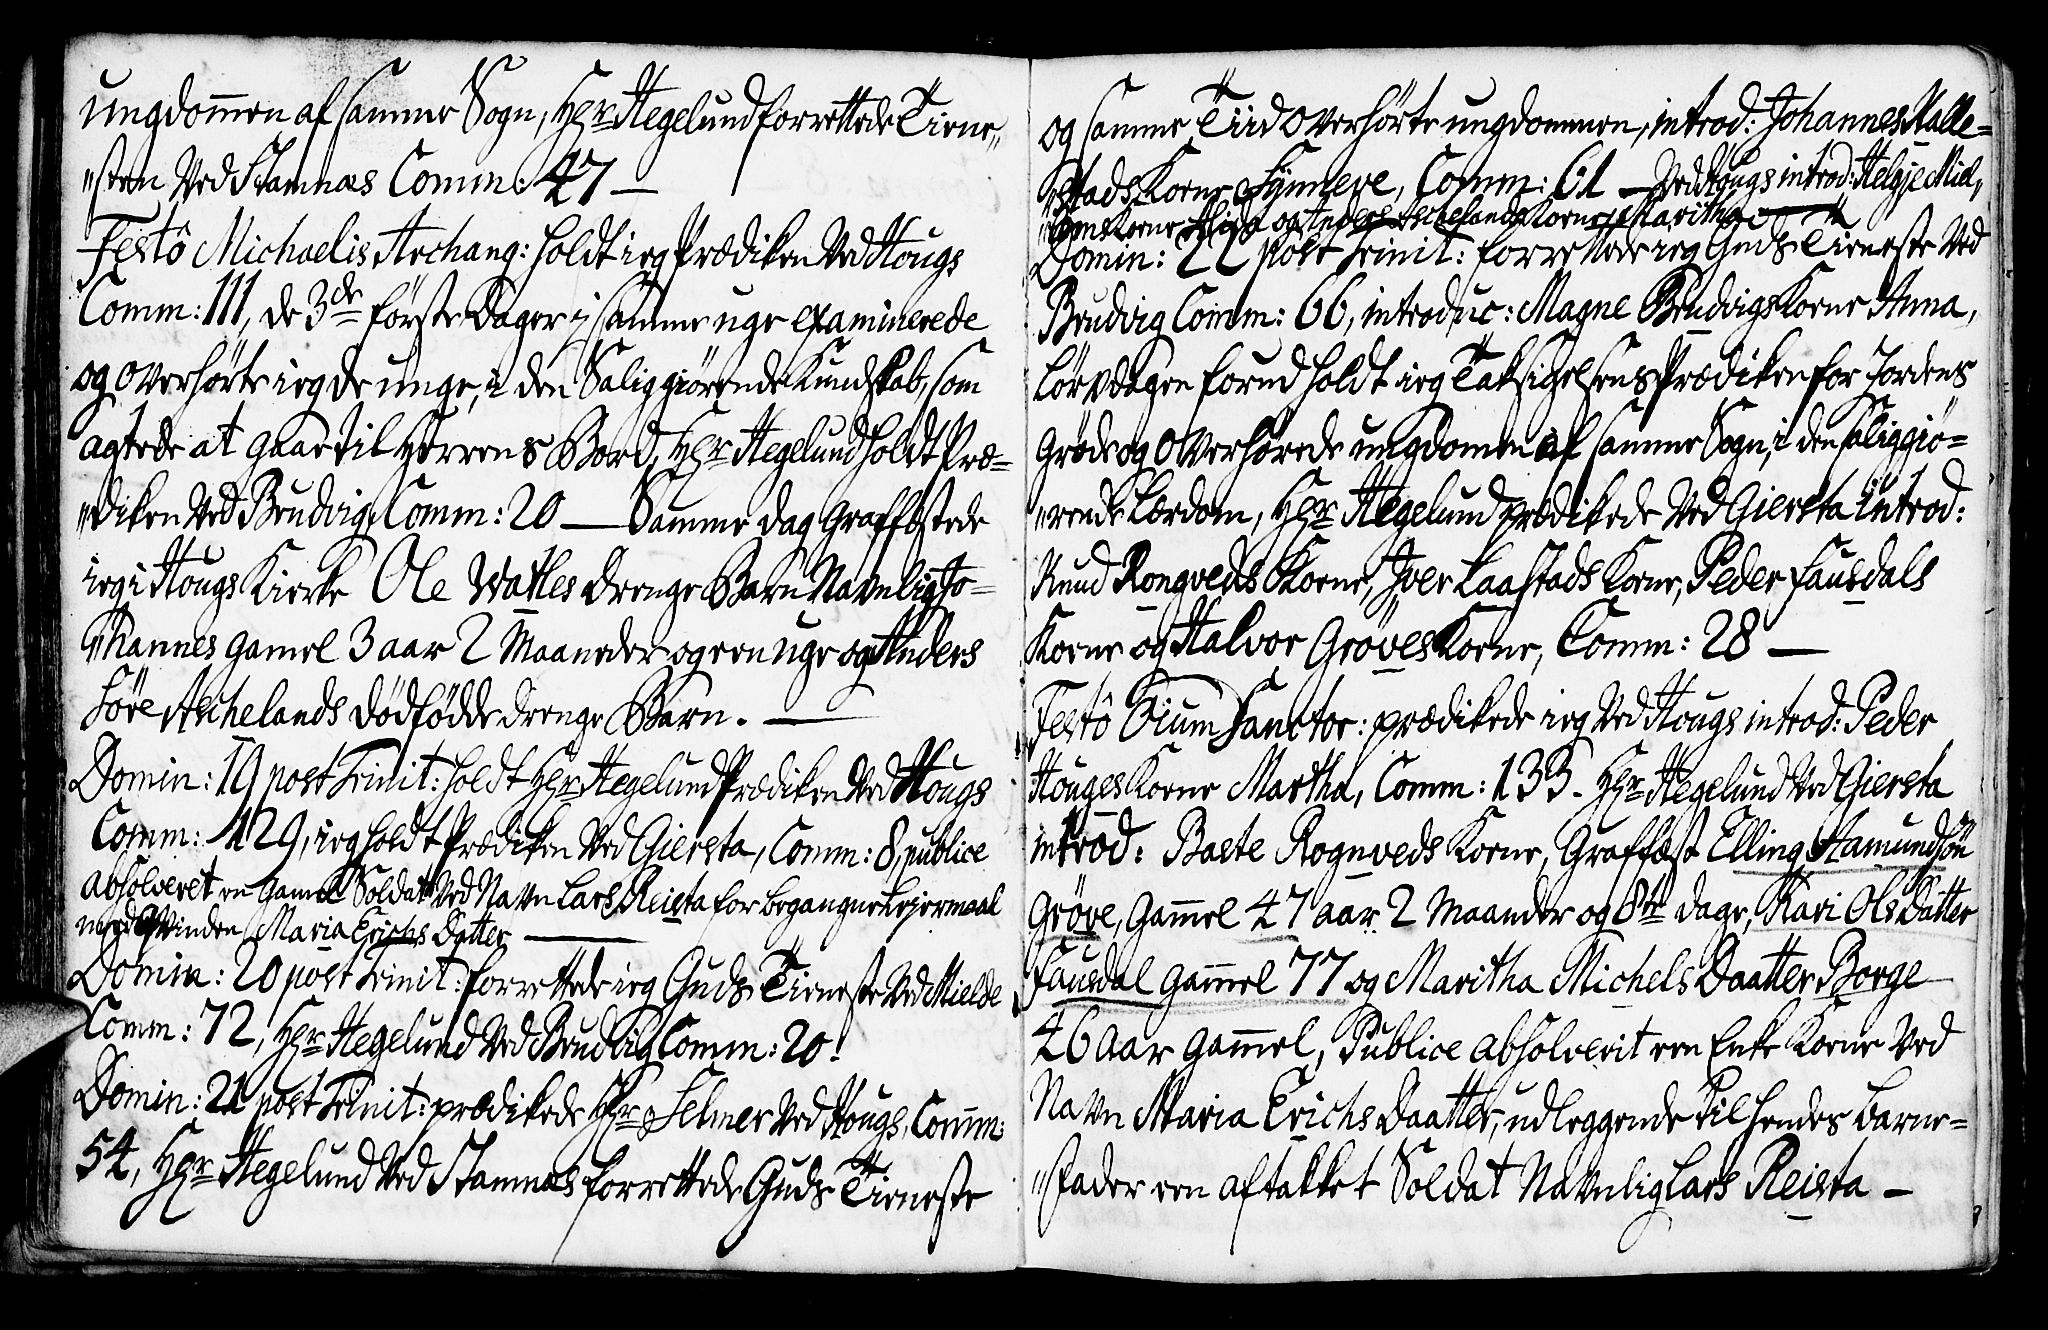 ungdomen af samme Sogn, Hr Hegelund forrettede Tiene„
„sten Ved Stamnæs Comm: 47 —
Festô Michaelis Archang: holdt ieg Prædiken Ved Hougs
Comm: 111, de 3de første Dager i samme uge examinerede
og overhørte ieg de unge, i den Saliggiørende Kundskab, som
agtede at gaae til Herrens Bord, Hr Hegelund holdt Præ=
„diken Ved Brudvig, Comm: 20 — Samme dag Graffæstede
ieg i Hougs Kirke Ole Watles drenge Barn Navnlig Jo=
„hannes gamel 3 aar 2 Maaneder og een uge og Anders
Søre Aschelands dødfødde drenge Barn. —
Domin: 19 post Trinit: holdt Hr Hegelund Prædiken Ved Hougs
Comm: 129, ieg holdt Prædiken Ved Giersta, Comm: 8, publice
absolveret en gamel Soldat Ved Navn Lars Reista for begangne Leyermaal
med Qvinden Maria Erichs Datter —
Domin: 20 post Trinit: forrettede ieg Guds Tieneste Ved Mielde
Comm: 72, Hr Hegelund Ved Brudvig Comm: 20.
Domin: 21 post Trinit: prædikede Hr Selmer Ved Hougs, Comm:
54, Hr Hegelund Ved Stamnæs forrettede Guds Tieneste
og samme Tiid overhørte ungdommen, introd: Johannes Nalle=
„stads Kone Synneve, Comm: 61 — Ved Hougs introd: Helgje Miel„
og Anders Aschelands Kone Maritha —
Domin: 22 post Trinit: forrettede ieg Guds Tieneste Ved
Brudvig Comm: 66, introduc: Magne Brudvigs Kone Anna,
Løvdagen forud holdt ieg Taksigelsens Prædiken for Jordens
Grøde og overhørede ungdomen af samme Sogn, i den saliggiø=
„rende Lærdom, Hr Hegelund prædikede Ved Giersta introd:
Knud Rongveds Kone, Iver Laastads Kone, Peder Fausdals
Kone og Halvor Grøves Kone, Comm: 28 —
Festô Oium Sanctor: prædikede ieg Ved Hougs introd: Peder
Houges Kone Martha, Comm: 133. Hr Hegelund Ved Giersta
introd: Baste Rognveds Kone, Graffæst Elling Hamundsøn
Grøve, Gamel 47 aar 2 Maander og 8te dage, Kari Ols Datter
Fausdal gamel 77 og Maritha Michels Daatter Borge
46 aar gamel, Publice absolverit een Enke Kone Ved
Navn Maria Erichs Daatter, udleggende til hendes barne=
„fader een aftakket Soldat Navnlig Lars Reista —